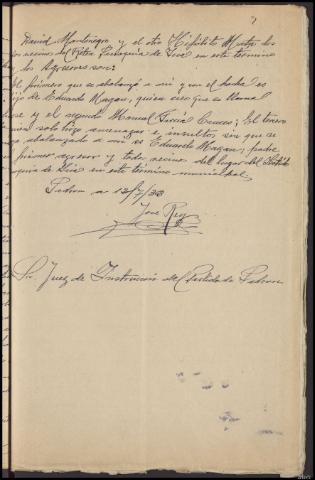 David Montenegro y el otro Hipólito Matos los
dos vecinos de Pedra Parroquia de Seira en este término
los Agresores son:
El primero que se abalanzó a mi y con el hacha es
hijo de Eduardo Magan, quien creo que se llama
José y el segundo Manuel García Cances; El tercero
quien solo hizo amenazas e insultos sin que se
haya abalanzado a mi es Eduardo Magan, padre
primer agresor y todos vecinos del lugar del
Parroquia de Seira en este término municipal.
Padron a 12/7/33
José Rey
Sr. Juez de Instrucción de Partido de Padron